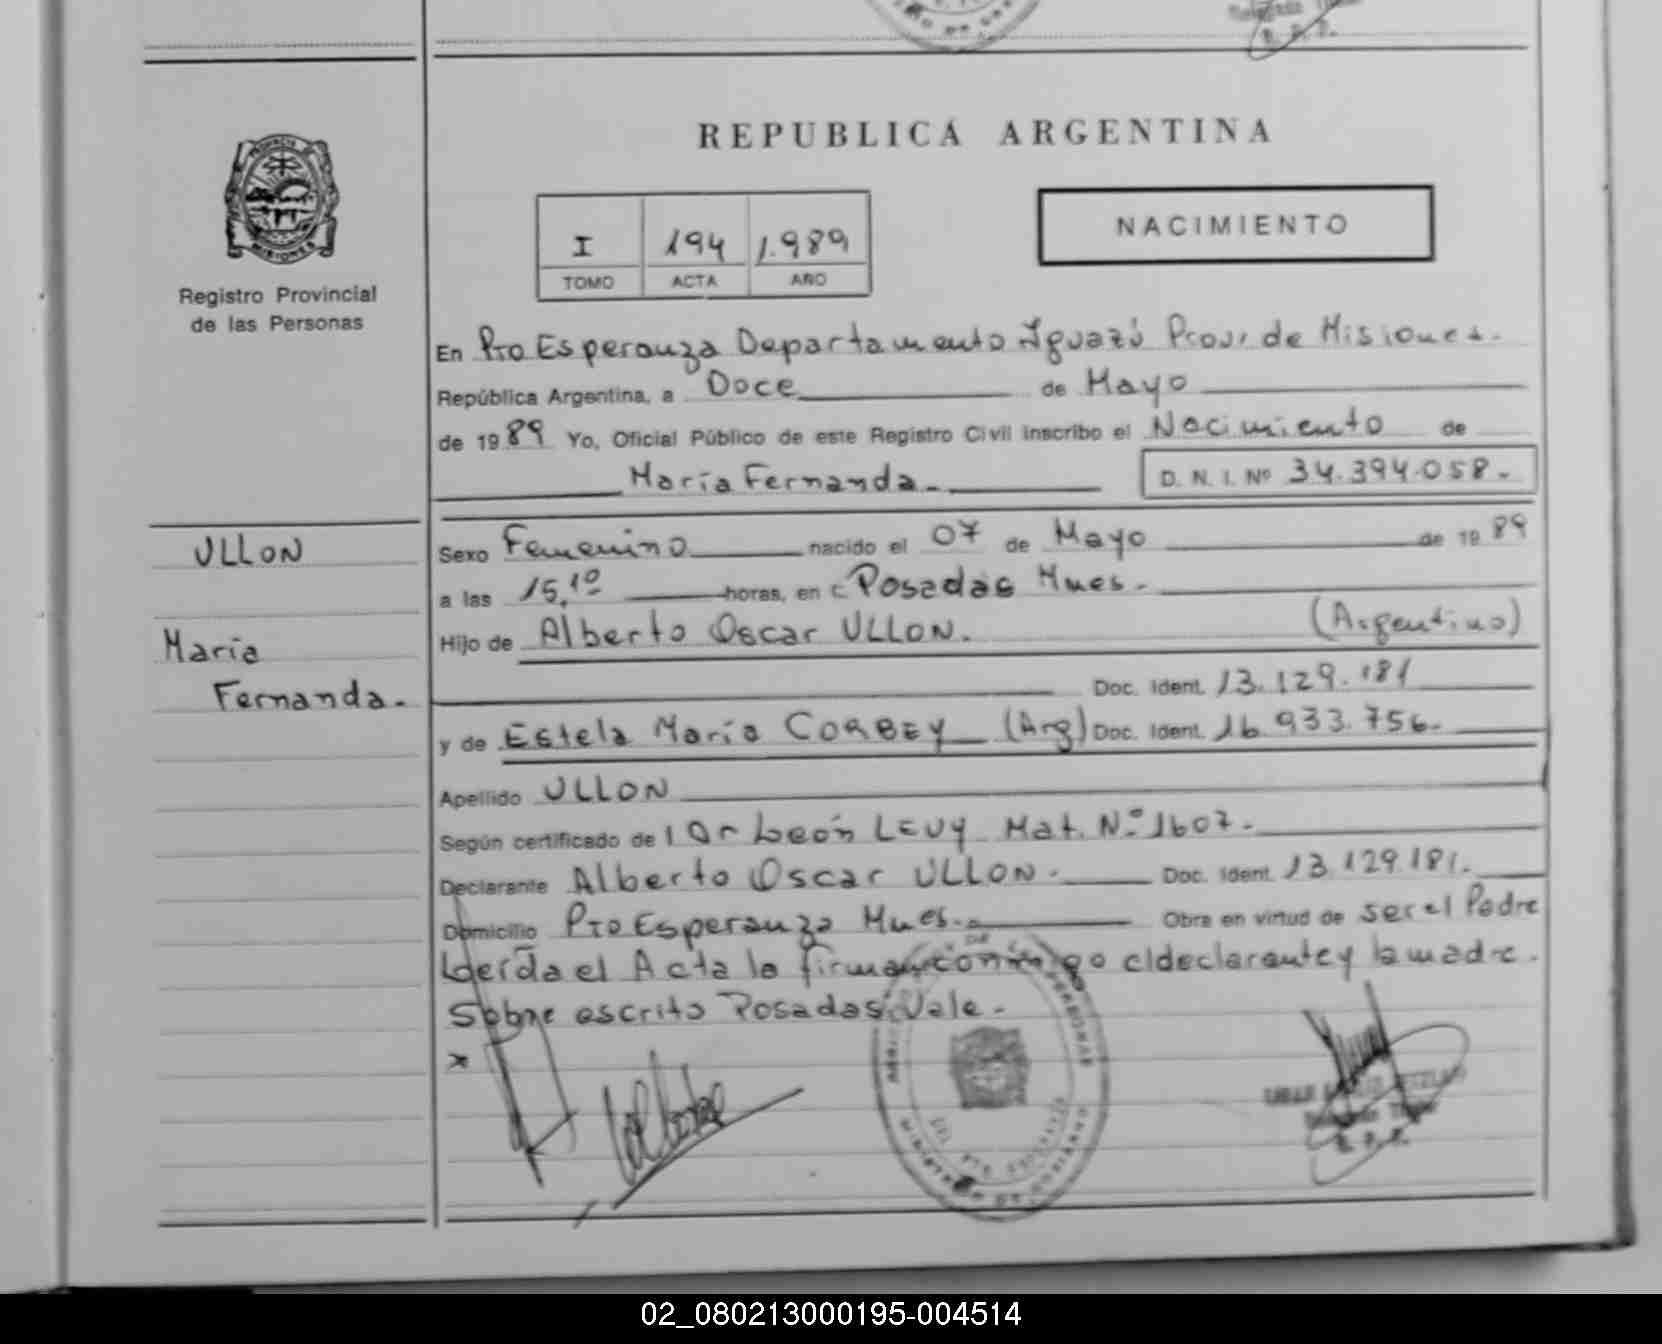 REPUBLICA ARGENTINA
PROVINCIA DE
MISIONES
Registro Provincial
de las Personas
I 194 1.989
TOMO ACTA AÑO
NACIMIENTO
En Pto Esperanza Departamento Iguazú Prov. de Misiones.
República Argentina, a Doce de Mayo
de 1989 Yo, Oficial Público de este Registro Civil inscribo el Nacimiento de
María Fernanda.
D. N. I. Nº 34.394.058.
ULLON
María
Fernanda.
Sexo Femenino nacido el 07 de Mayo de 1989
a las 15,10 horas, en Posadas Mnes.
Hijo de Alberto Oscar ULLON. (Argentino)
Doc. Ident. 13.129.181
y de Estela María CORBEY (Arg) Doc. Ident. 16.933.756.
Apellido ULLON
Según certificado de Dr León LEVY Mat. Nº 1607.
Declarante Alberto Oscar ULLON. Doc. Ident. 13.129.181.
Domicilio Pto Esperanza Mnes. Obra en virtud de ser el Padre
Leída el Acta la firman conmigo el declarante y la madre.
Sobre escrito Posadas: Vale.
x
MINISTERIO DE GOBIERNO
R. P. P.
02_080213000195-004514